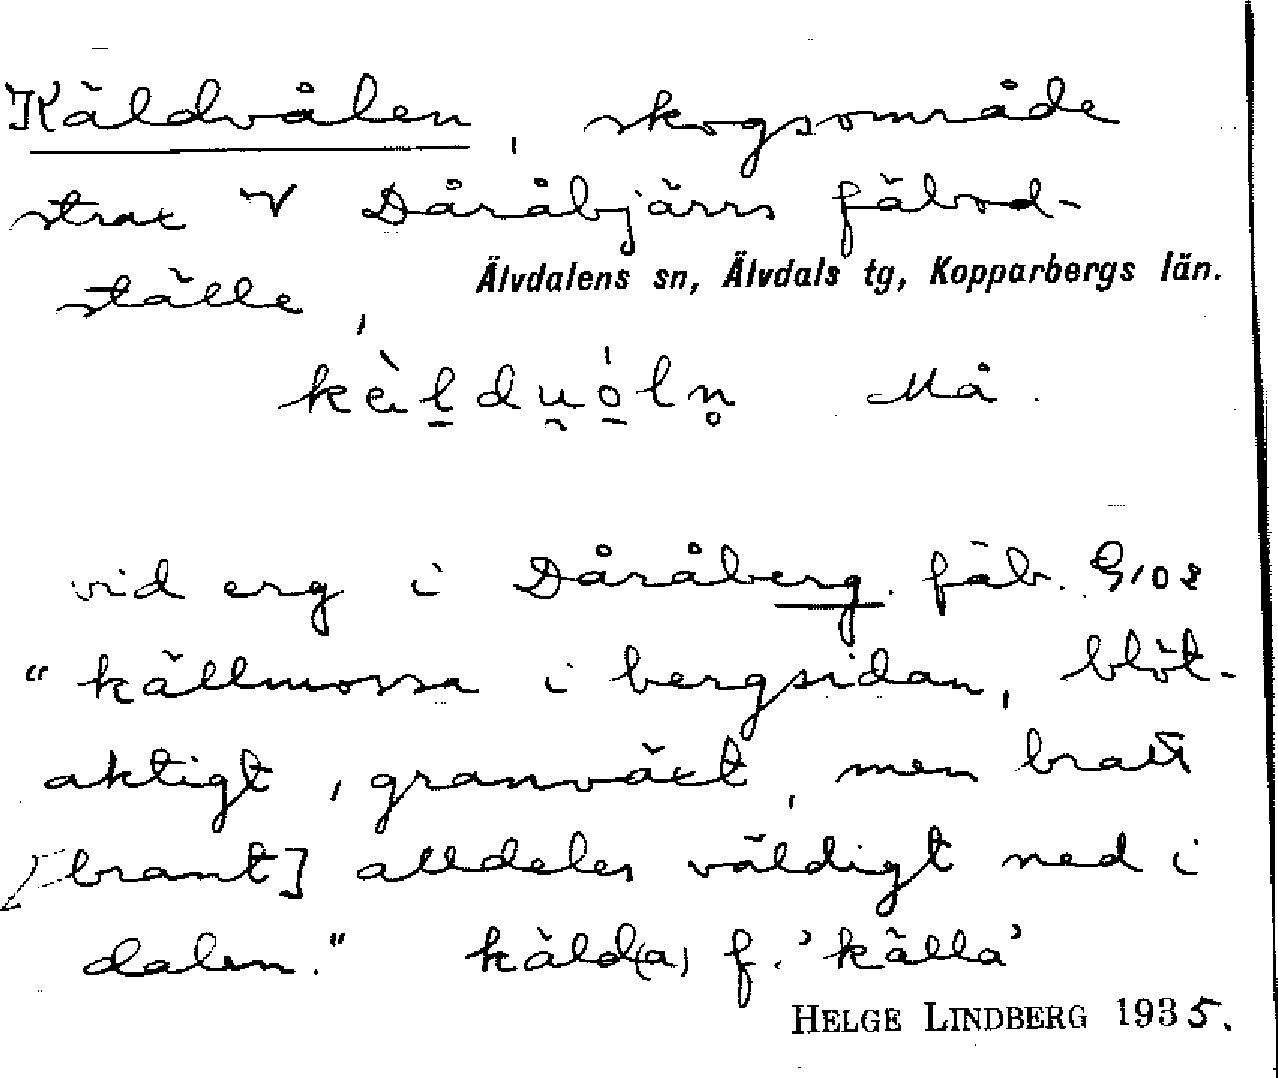 Käldvålen, skogsområde
strax V Dåråbjärs fäbod-
ställe,
Älvdalens sn, Älvdals tg, Kopparbergs län.
Må.
vid erg i Dåråberg. fäb. G102
"källmossa i bergsidan, blöt-
aktigt, granväxt, men bratt
[brant] alldeles väldigt ned i
dalen." käld(a) f. 'källa'
HELGE LINDBERG 1935.